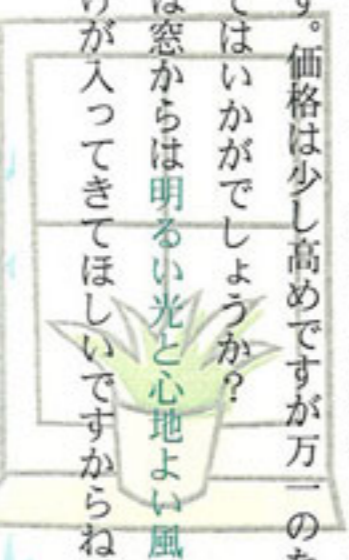 す。価格は少し高めですが万一の
てはいかがでしょうか?
は窓からは明るい光と心地よい風
が入ってきてほしいですからね